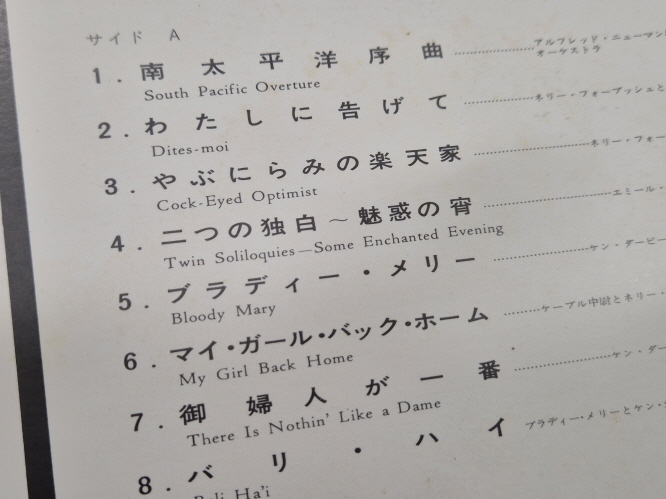 サイド A
1. 南太平洋序曲 ………… アルフレッド・ニューマン
オーケストラ
South Pacific Overture
2. わたしに告げて ………… ネリー・フォーブッシュと
Dites-moi
3. やぶにらみの楽天家 ………… ネリー・フォー
Cock-Eyed Optimist
4. 二つの独白～魅惑の宵 ………… エミール・
Twin Soliloquies—Some Enchanted Evening
5. ブラディー・メリー ………… ケン・ダービー
Bloody Mary
6. マイ・ガール・バック・ホーム ……… ケーブル中尉とネリー・
My Girl Back Home
7. 御婦人が一番 ………… ケン・ダー
There Is Nothin' Like a Dame
8. バリ・ハイ ブラディー・メリーとケン・
Bali Ha'i